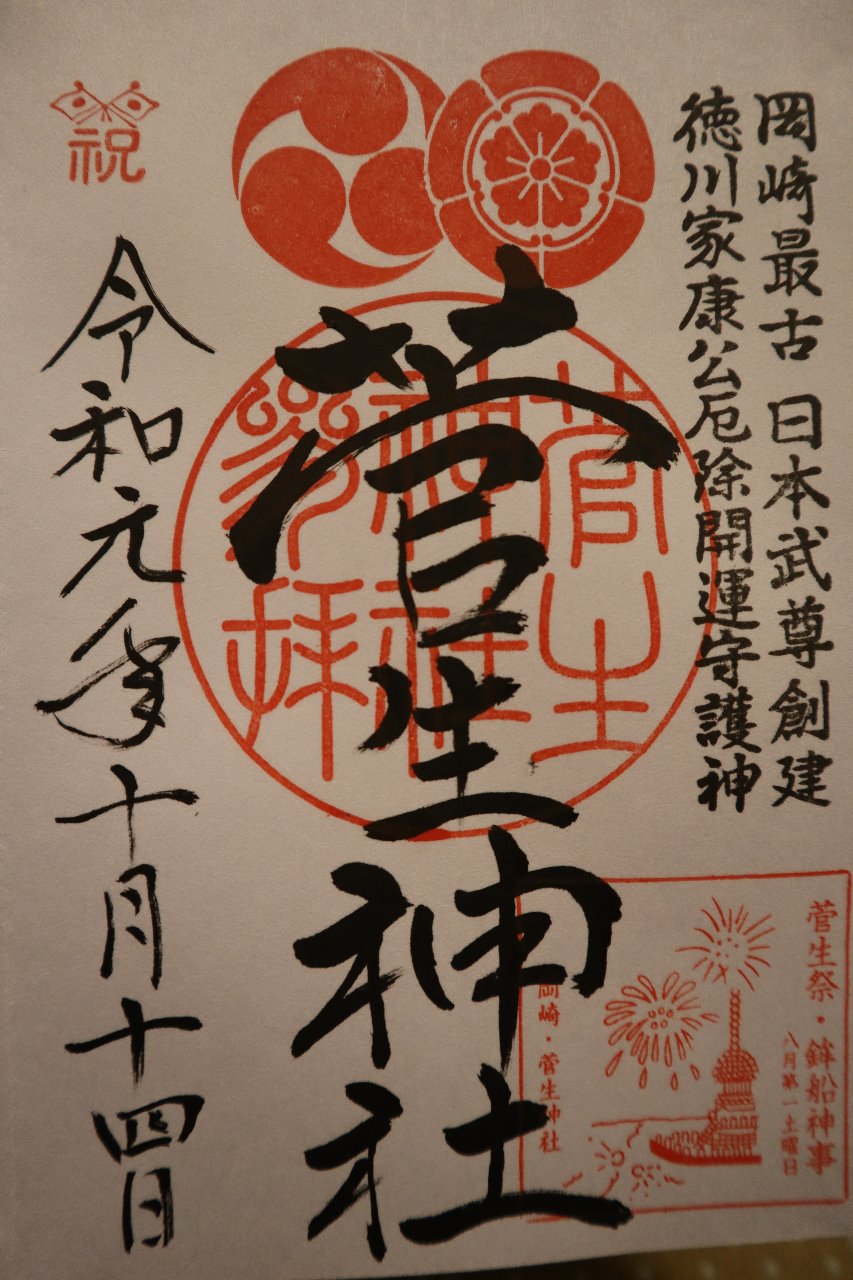 岡崎最古 日本武尊創建
徳川家康公厄除開運守護神
菅生神社
菅生
神社
参拝
祝
令和元年十月十四日
菅生祭・鉾船神事
八月第一土曜日
岡崎・菅生神社